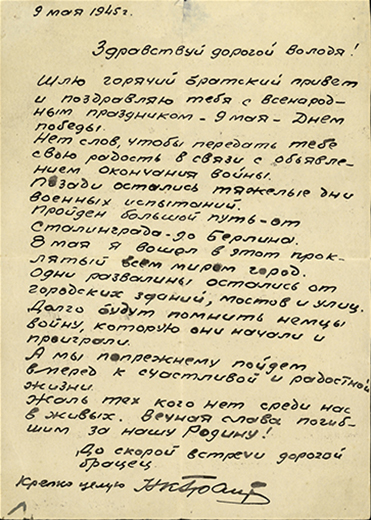 9 мая 1945г.
Здравствуй дорогой Володя!
Шлю горячий братский привет
и поздравляю тебя с всенарод-
ным праздником - 9 мая - Днем
победы.
Нет слов, чтобы передать тебе
свою радость в связи с объявле-
нием окончания войны.
Позади остались тяжелые дни
военных испытаний.
Пройден большой путь - от
Сталинграда - до Берлина.
8 мая я вошел в этот прок-
лятый всем миром город.
Одни развалины остались от
городских зданий, мостов и улиц.
Долго будут помнить немцы
войну, которую они начали и
проиграли.
А мы попрежнему пойдем
вперед к счастливой и радостной
жизни.
Жаль тех кого нет среди нас
в живых. Вечная слава погиб-
шим за нашу Родину!
До скорой встречи дорогой
братец.
Крепко целую